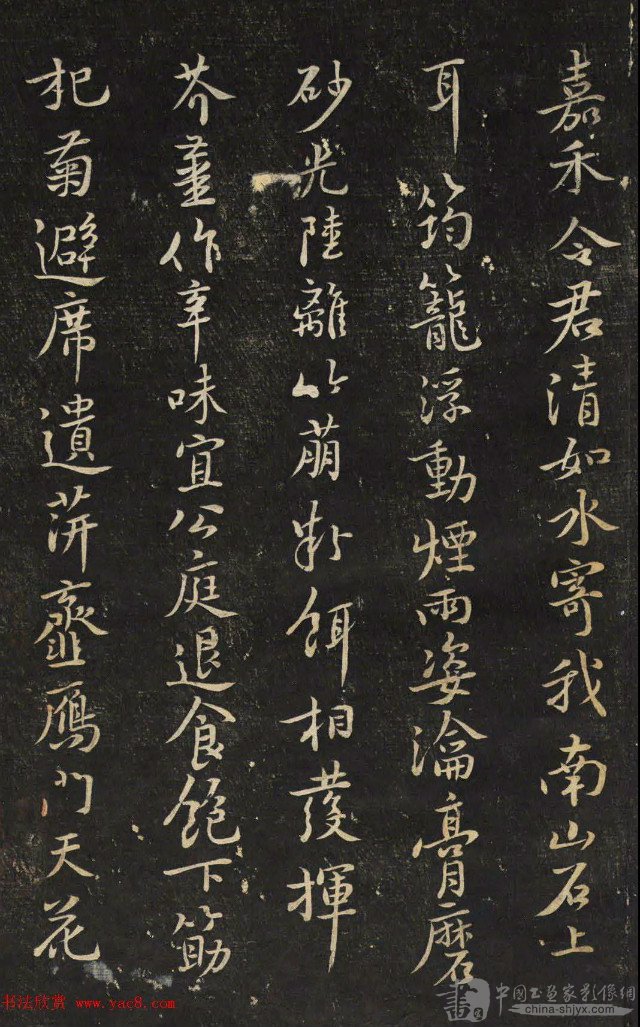 嘉禾令君清如水寄我南山石上
耳筠籠浮動煙雨姿瀹膏磨
砂光陸離竹萌粉餌相發揮
芥薑作辛味宜公庭退食飽下筯
杞菊避席遺荓虀鴈門天花
书法欣赏 www.yac8.com
書 中国书画家影像網
china-shjyx.com